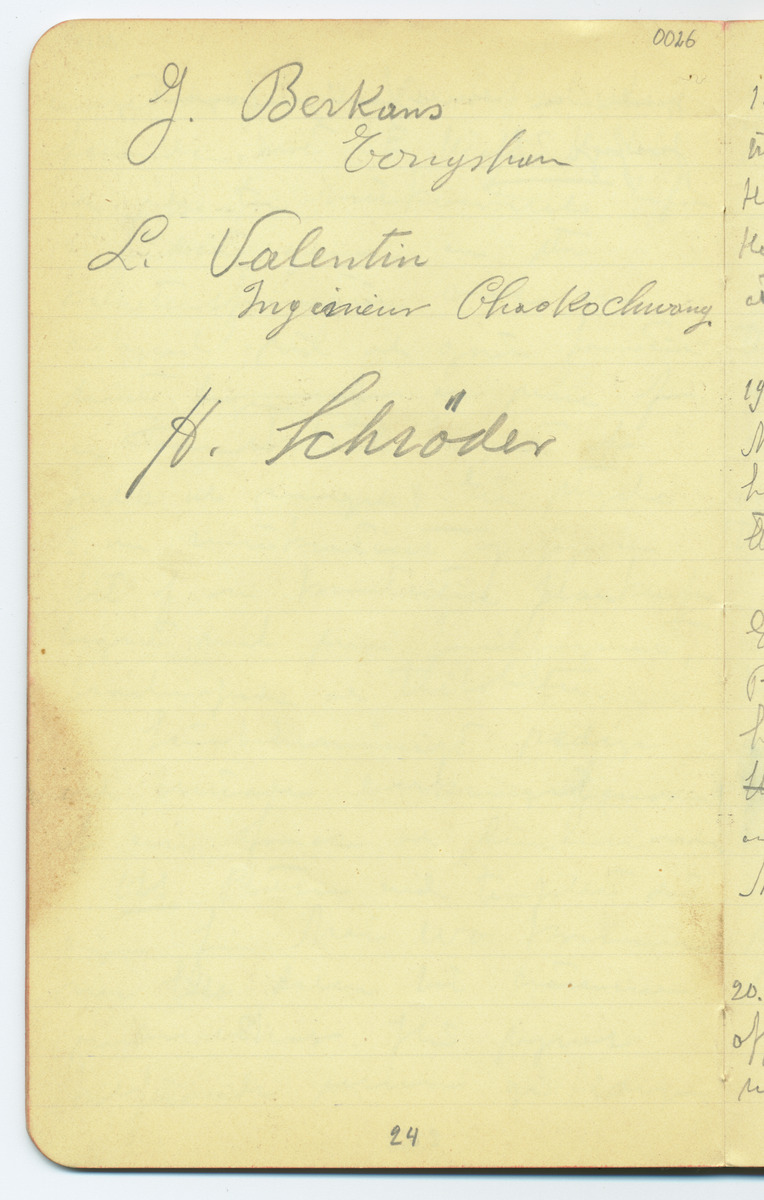 0026
J. Berkans
Tongshan
L. Valentin
Ingeinieur Chaokochwang
H. Schröder
24
19
20.
of